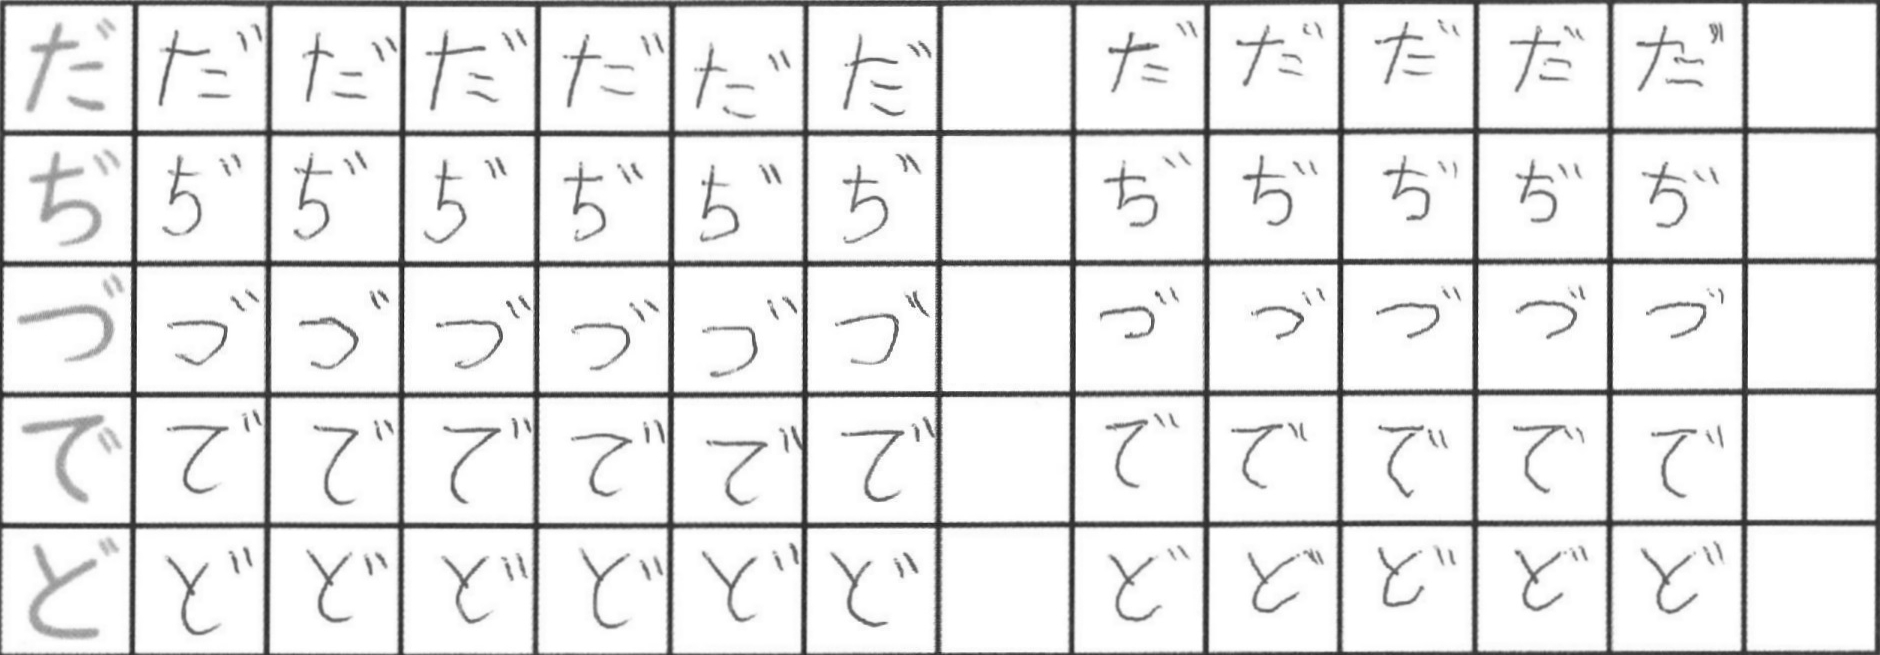 だ だ だ だ だ だ だ だ だ だ だ だ
ぢ ぢ ぢ ぢ ぢ ぢ ぢ ぢ ぢ ぢ ぢ ぢ
づ づ づ づ づ づ づ づ づ づ づ づ
で で で で で で で で で で で で
ど ど ど ど ど ど ど ど ど ど ど ど